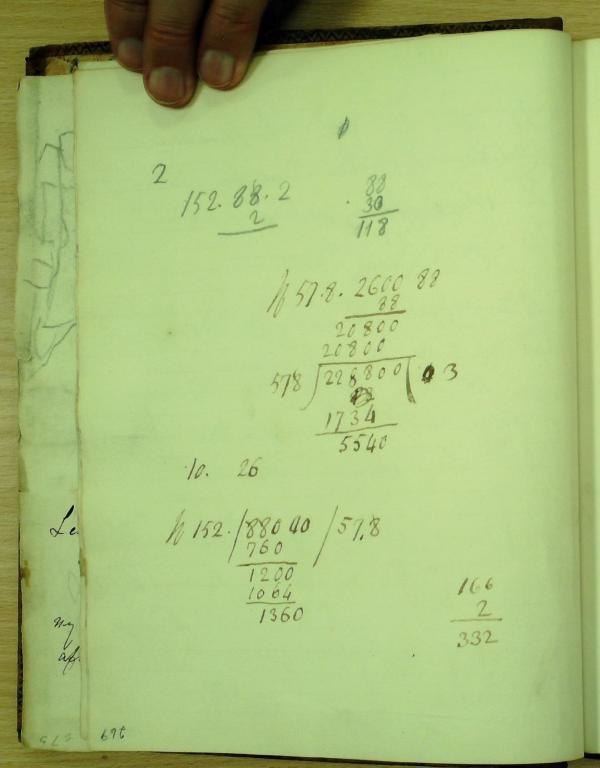 2
152. 88. 2
2
88
30
118
57.8. 2600 88
88
20800
20800
578 228800 3
1734
5540
10. 26
152. 88000 57.8
760
1200
1064
1360
166
2
332